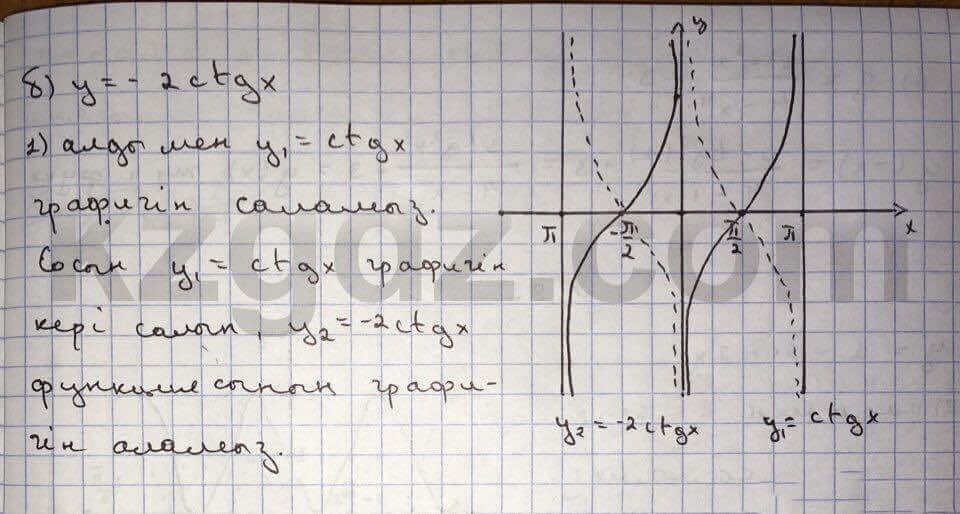 б) y = - 2ctgx
1) алдымен y₁ = ctgx
графигін саламыз.
Сосын y₁ = ctgx графигін
кері салып, y₂ = -2ctgx
функциясының графи-
гін аламыз.
y
x
π
-π/2
π/2
π
y₂ = -2ctgx
y₁ = ctgx
kzgdz.com